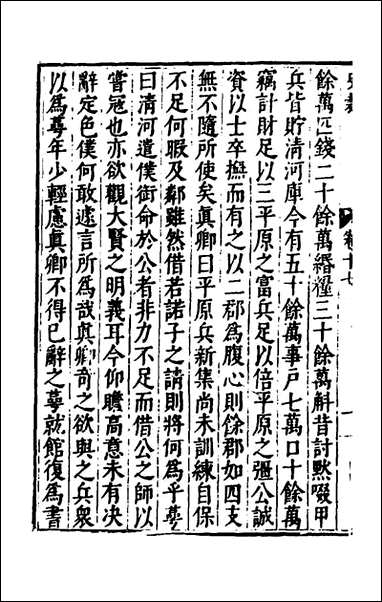 餘萬匹錢二十餘萬緡糧三十餘萬斛昔討默啜甲
兵皆貯清河庫今有五十餘萬事戶七萬口十餘萬
竊計財足以三平原之富兵足以倍平原之彊公誠
資以士卒撫而有之以二郡為腹心則餘郡如四支
無不隨所使矣真卿曰平原兵新集尚未訓練自保
不足何暇及鄰雖然借若諾子之請則將何為乎萼
曰清河遣僕銜命於公者非力不足而借公之師以
嘗寇也亦欲觀大賢之明義耳今仰瞻高意未有決
辭定色僕何敢遽言所為哉真卿奇之欲與之兵衆
以為萼年少輕慮真卿不得已辭之萼就館復為書
卷十七